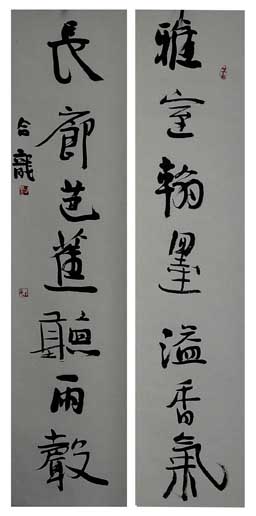 雅室翰墨溢香氣
長廊芭蕉聽雨聲